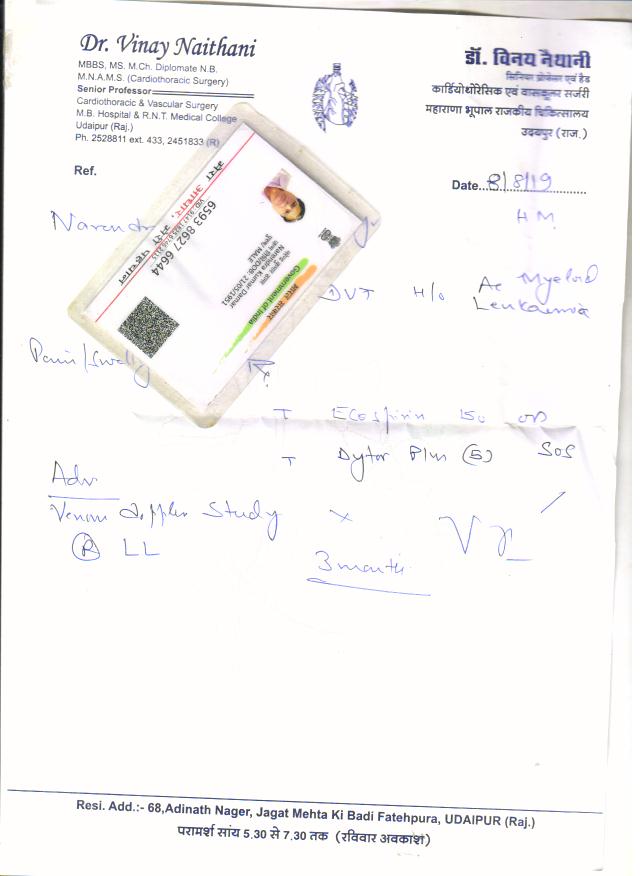 Dr. Vinay Naithani
MBBS, MS. M.Ch. Diplomate N.B.
M.N.A.M.S. (Cardiothoracic Surgery)
Senior Professor
Cardiothoracic & Vascular Surgery
M.B. Hospital & R.N.T. Medical College
Udaipur (Raj.)
Ph. 2528811 ext. 433, 2451833 (R)
डॉ. विनय नैथानी
सिनियर प्रोफेसर एवं हैड
कार्डियोथोरेसिक एवं वासकुलर सर्जरी
महाराणा भूपाल राजकीय चिकित्सालय
उदयपुर (राज.)
Ref.
Date...8/8/19
H M
Narendr
भारत सरकार
Government of India
Narendra Kumar Damar
DOB: 21/05/1951
MALE
6593 8627 6644
मेरा आधार, मेरी पहचान
DVT H/o Ac Myeloid
Leukaemia
Pain/Swellg
T Ecosprin 150 OD
T Dytor Plus (5) SOS
Adv
Venous doppler Study x
R LL
3 months
Resi. Add.:- 68,Adinath Nager, Jagat Mehta Ki Badi Fatehpura, UDAIPUR (Raj.)
परामर्श सांय 5.30 से 7.30 तक (रविवार अवकाश)